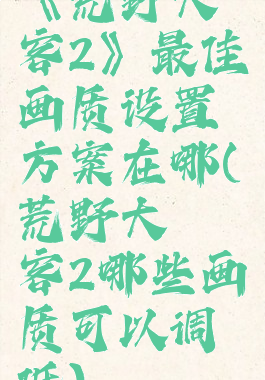 《荒野大
客2》最佳
画质设置
方案在哪(
荒野大
客2哪些画
质可以调